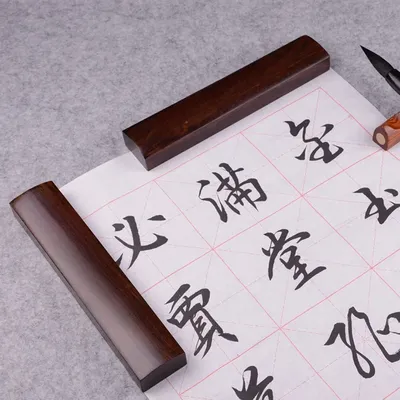 金玉
滿堂
必賈